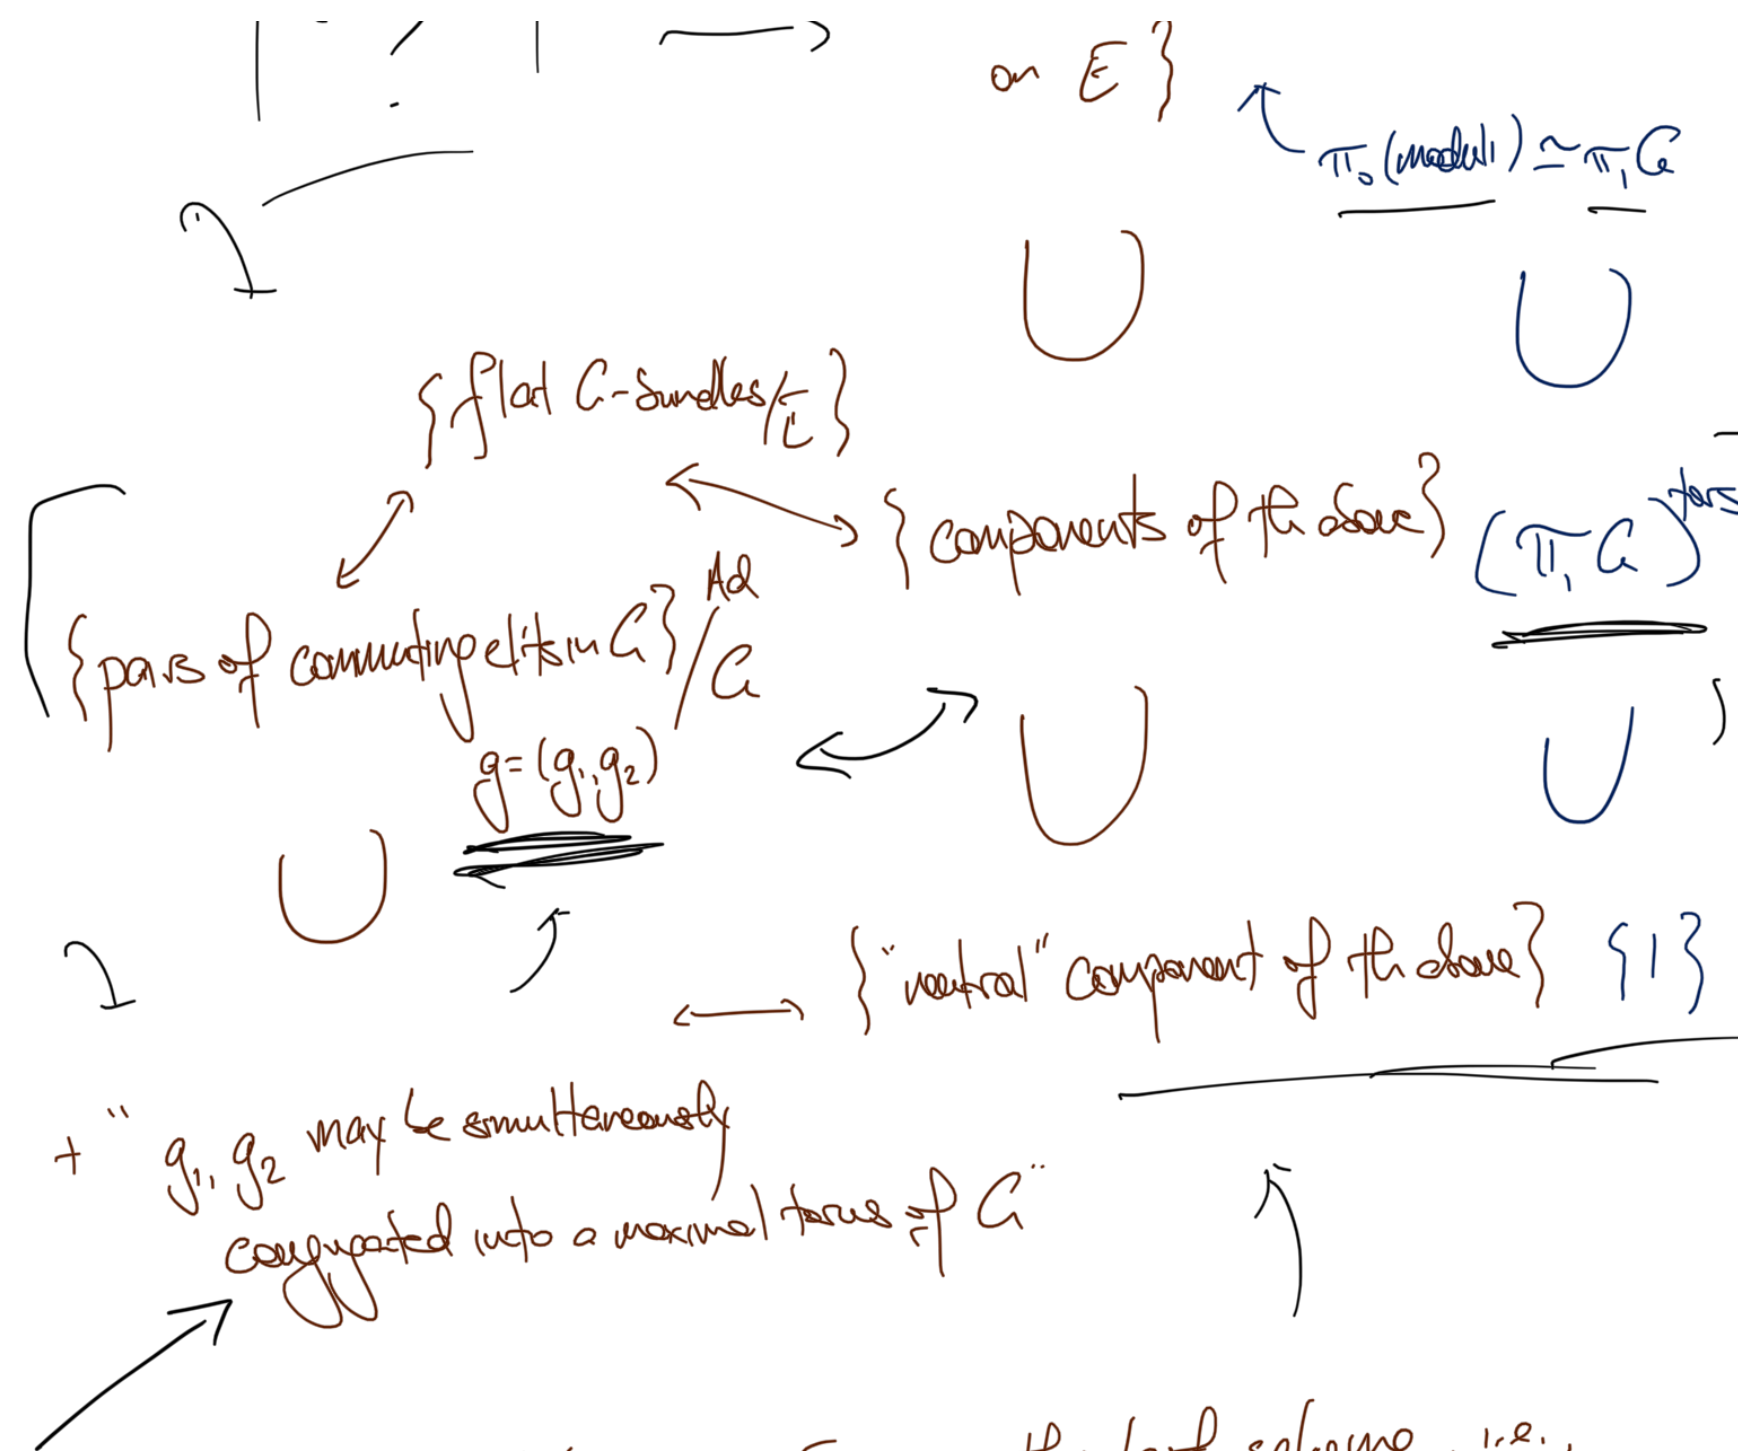 on E }
π₀(moduli) ≃ π₁G
{flat G-bundles/E}
{components of the above} (π₁G)^tors
{pairs of commuting elts in G}/G Ad
g = (g₁, g₂)
{"neutral" component of the above} {1}
+ "g₁, g₂ may be simultaneously
conjugated into a maximal torus of G"
i.e.